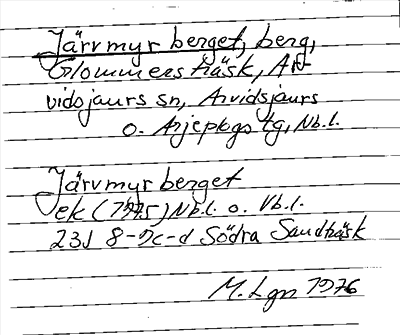 Järvmyrberget, berg,
Glommersträsk, Ar-
vidsjaurs sn, Arvidsjaurs
o. Arjeplogs tg, Nb.l.
Järvmyrberget
ek (1975) Nb.l. o. Vb.l.
23J 8-9c-d Södra Sandträsk
M. Lgn 1976